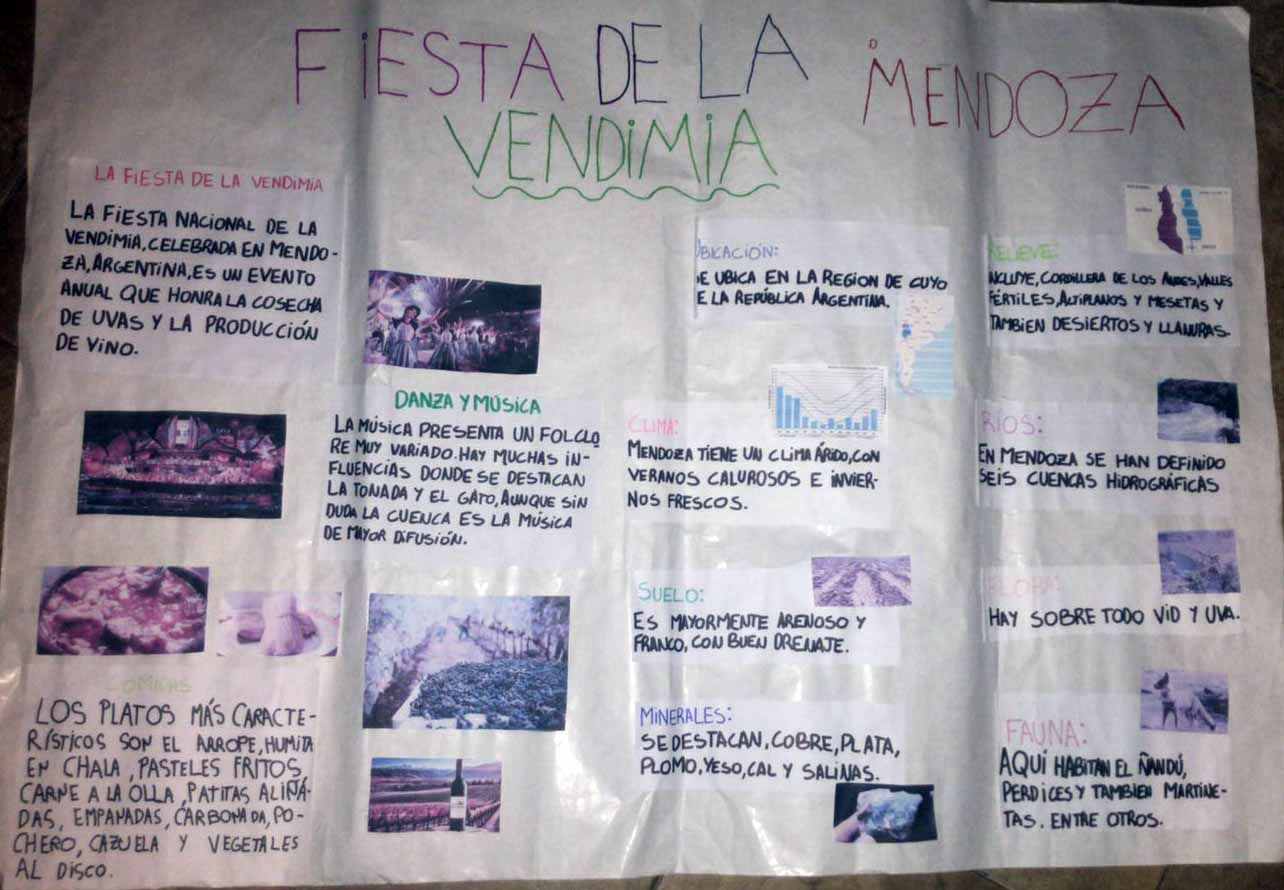 FiESTA DE LA
VENDiMiA
MENDOZA
LA FiESTA DE LA VENDIMIA
LA FiESTA NACIONAL DE LA
VENDIMIA, CELEBRADA EN MENDO-
ZA, ARGENTINA, ES UN EVENTO
ANUAL QUE HONRA LA COSECHA
DE UVAS Y LA PRODUCCIÓN
DE VINO.
DANZA Y MÚSICA
LA MÚSICA PRESENTA UN FOLCLO
RE MUY VARIADO. HAY MUCHAS IN-
FLUENCIAS DONDE SE DESTACAN
LA TONADA Y EL GATO, AUNQUE SIN
DUDA LA CUENCA ES LA MÚSICA
DE MAYOR DIFUSIÓN.
COMIDAS
LOS PLATOS MÁS CARACTE-
RÍSTICOS SON EL ARROPE, HUMITA
EN CHALA, PASTELES FRITOS,
CARNE A LA OLLA, PATITAS ALIÑA-
DAS, EMPANADAS, CARBONADA, PO-
CHERO, CAZUELA Y VEGETALES
AL DISCO.
UBICACIÓN:
SE UBICA EN LA REGION DE CUYO
DE LA REPÚBLICA ARGENTINA.
CLIMA:
MENDOZA TIENE UN CLIMA ÁRIDO, CON
VERANOS CALUROSOS E INVIER-
NOS FRESCOS.
SUELO:
ES MAYORMENTE ARENOSO Y
FRANCO, CON BUEN DRENAJE.
MINERALES:
SE DESTACAN, COBRE, PLATA,
PLOMO, YESO, CAL Y SALINAS.
RELIEVE:
INCLUYE, CORDILLERA DE LOS ANDES, VALLES
FÉRTILES, ALTIPLANOS Y MESETAS Y
TAMBIEN DESIERTOS Y LLANURAS.
RIOS:
EN MENDOZA SE HAN DEFINIDO
SEIS CUENCAS HIDROGRÁFICAS
FLORA:
HAY SOBRE TODO VID Y UVA.
FAUNA:
AQUÍ HABITAN EL ÑANDÚ,
PERDICES Y TAMBIEN MARTINE-
TAS. ENTRE OTROS.